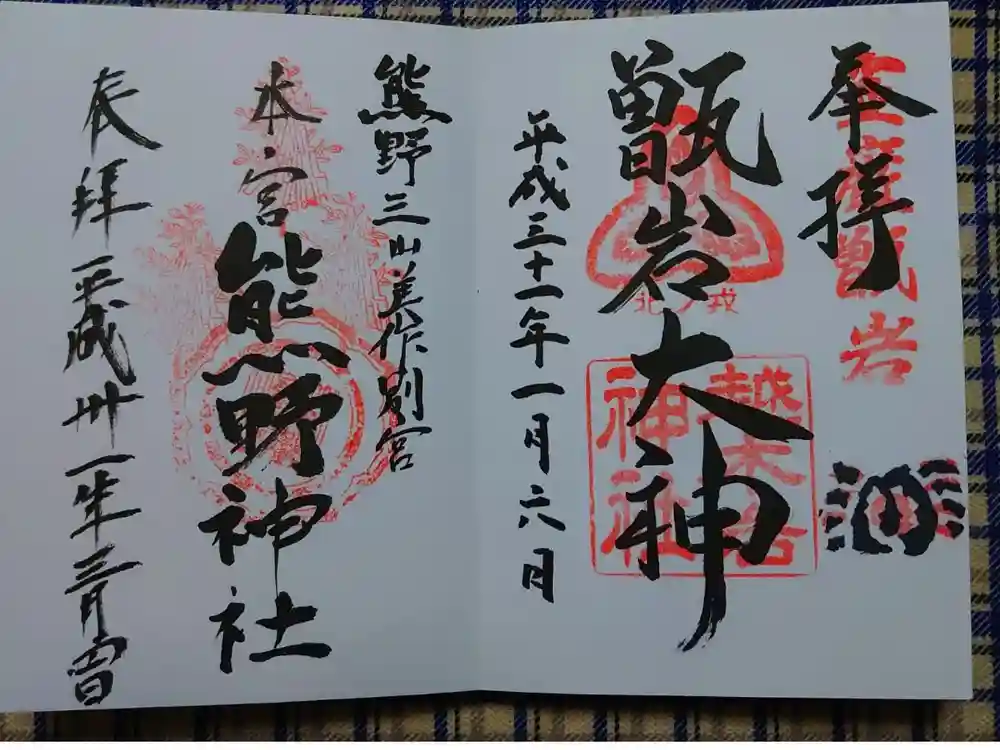 奉拝
甑岩大神
平成三十一年一月六日
越木岩
神社
甑岩
熊野三山美作別宮
本宮
熊野神社
奉拝 平成卅一年三月